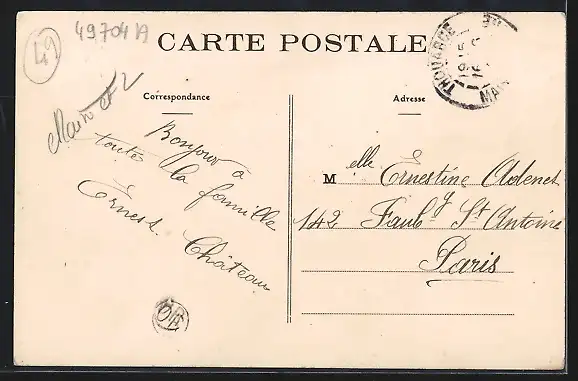 49
49704 A
CARTE POSTALE
THOUARCÉ
MAI
Correspondance
Adresse
Maine et L
Bonjour à
toutes la famille
Ernest Château
Melle Ernestine Adenet
142 Faubg St Antoine
Paris